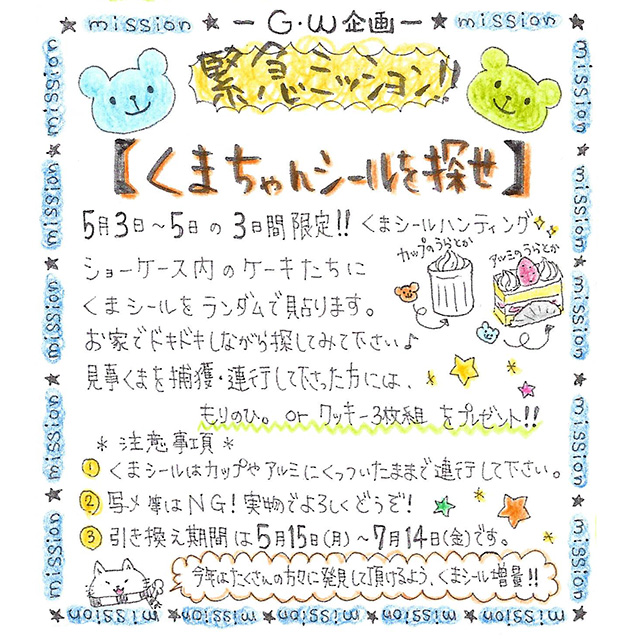 ★ mission ★ － G・W企画 － ★ mission ★
緊急ミッション!!
【くまちゃんシールを探せ】
5月3日～5日の3日間限定!! くまシールハンティング
カップのうらとか アルミのうらとか
ショーケース内のケーキたちに
くまシールをランダムで貼ります。
お家でドキドキしながら探してみて下さい♪
見事くまを捕獲・連行して下さった方には、
もりのひ。 or クッキー3枚組 をプレゼント!!
＊ 注意事項 ＊
① くまシールはカップやアルミにくっついたままで連行して下さい。
② 写メ等はNG! 実物でよろしくどうぞ!
③ 引き換え期間は5月15日(月)～7月14日(金)です。
今年はたくさんの方々に発見して頂けるよう、くまシール増量!!
mission ★ mission ★ mission ★ mission ★ mission
mission ★ mission ★ mission ★ mission ★ mission
mission ★ mission ★ mission ★ mission ★ mission